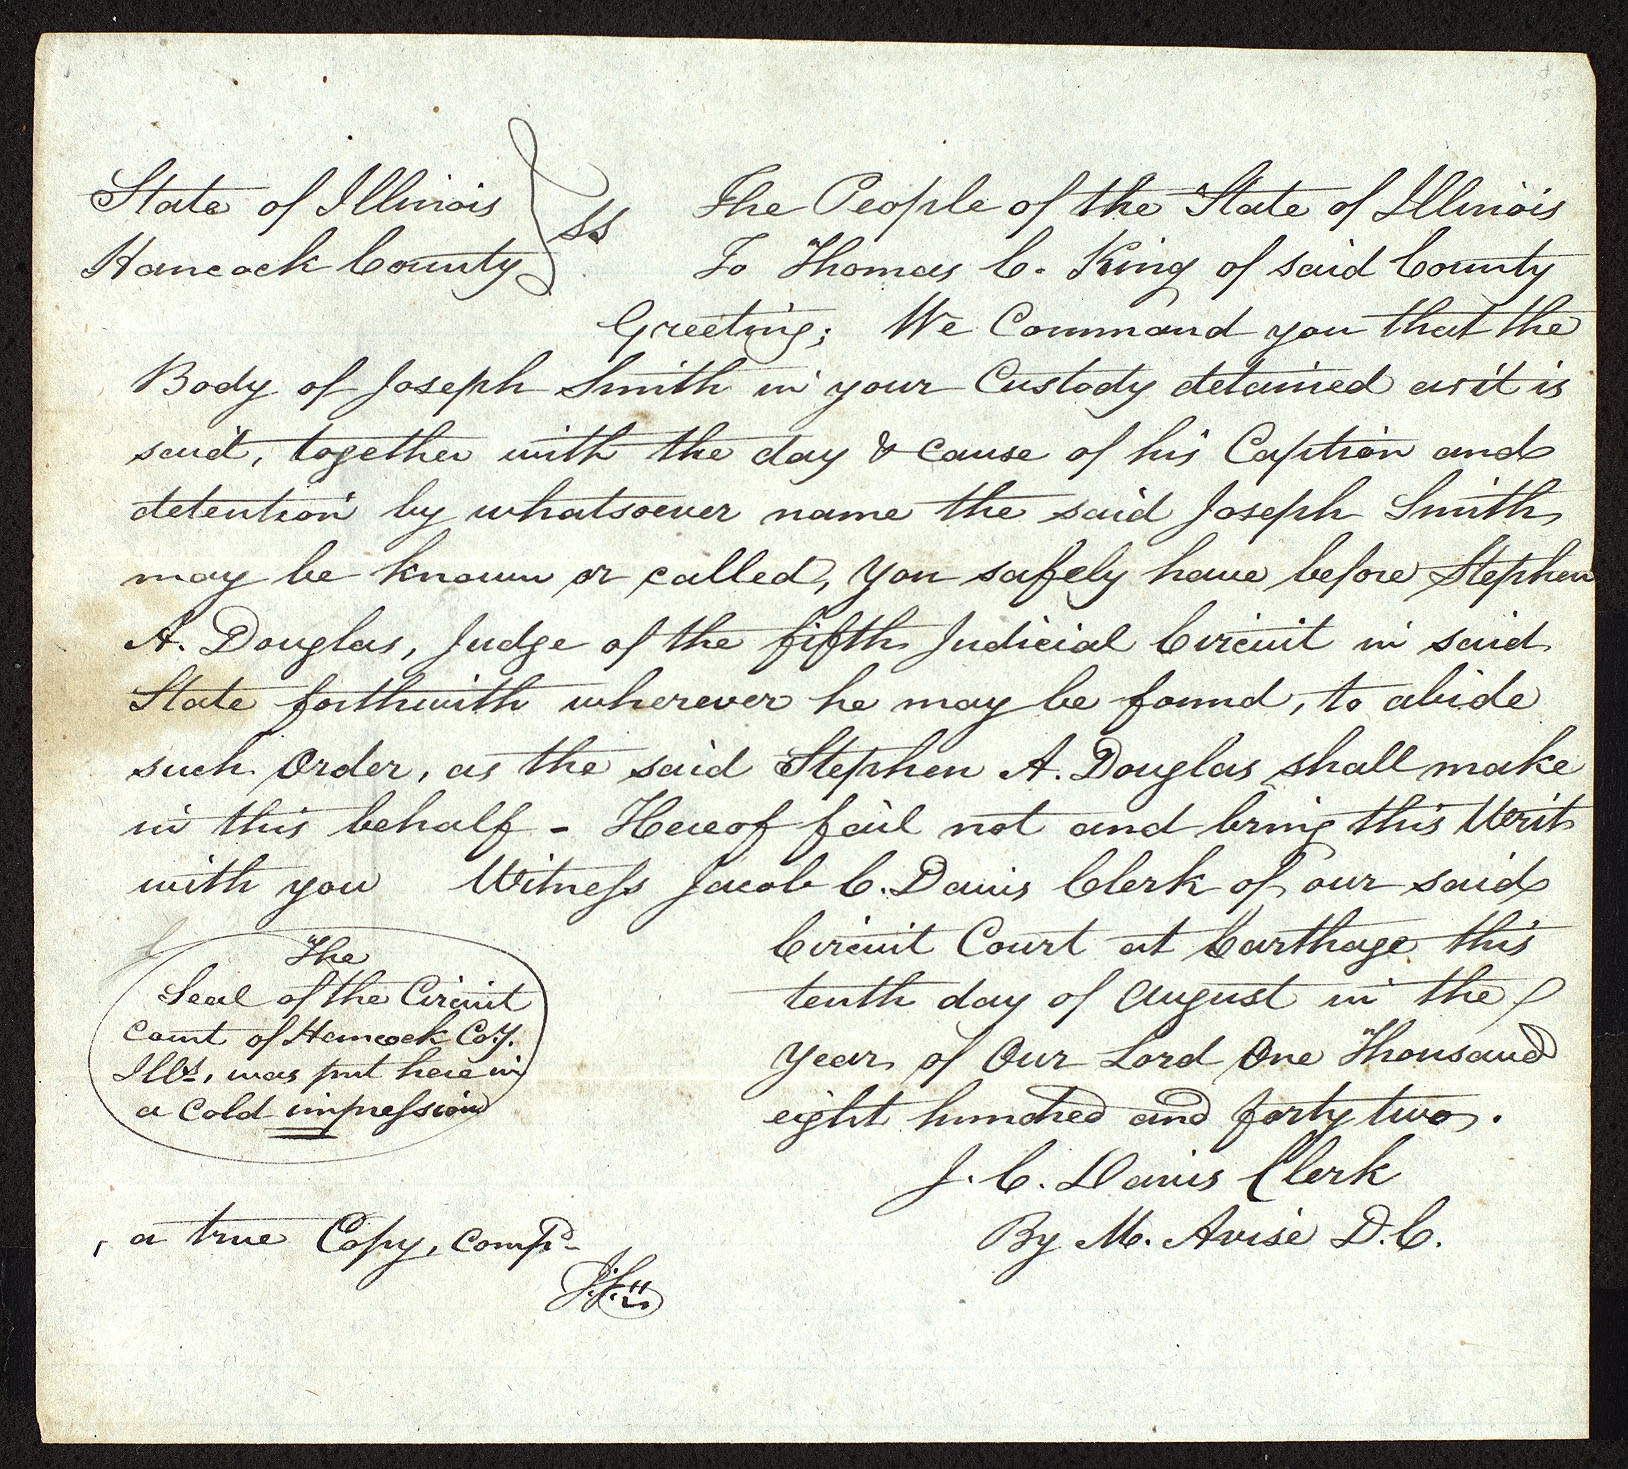 State of Illinois } ss The People of the State of Illinois
Hancock County } To Thomas C. King of said County
Greeting; We Command you that the
Body of Joseph Smith in your Custody detained as it is
said, together with the day & cause of his Caption and
detention by whatsoever name the said Joseph Smith
may be known or called, you safely have before Stephen
A. Douglas, Judge of the fifth Judicial Circuit in said
State forthwith wherever he may be found, to abide
such Order, as the said Stephen A. Douglas shall make
in this behalf - Hereof fail not and bring this Writ
with you Witness Jacob C. Davis Clerk of our said
Circuit Court at Carthage this
tenth day of August in the
year of Our Lord One Thousand
eight hundred and forty two.
J. C. Davis Clerk
By M. Avise D.C.
The
Seal of the Circuit
court of Hancock Coy.
Ills, was put here in
a cold impression
a true Copy, compd-